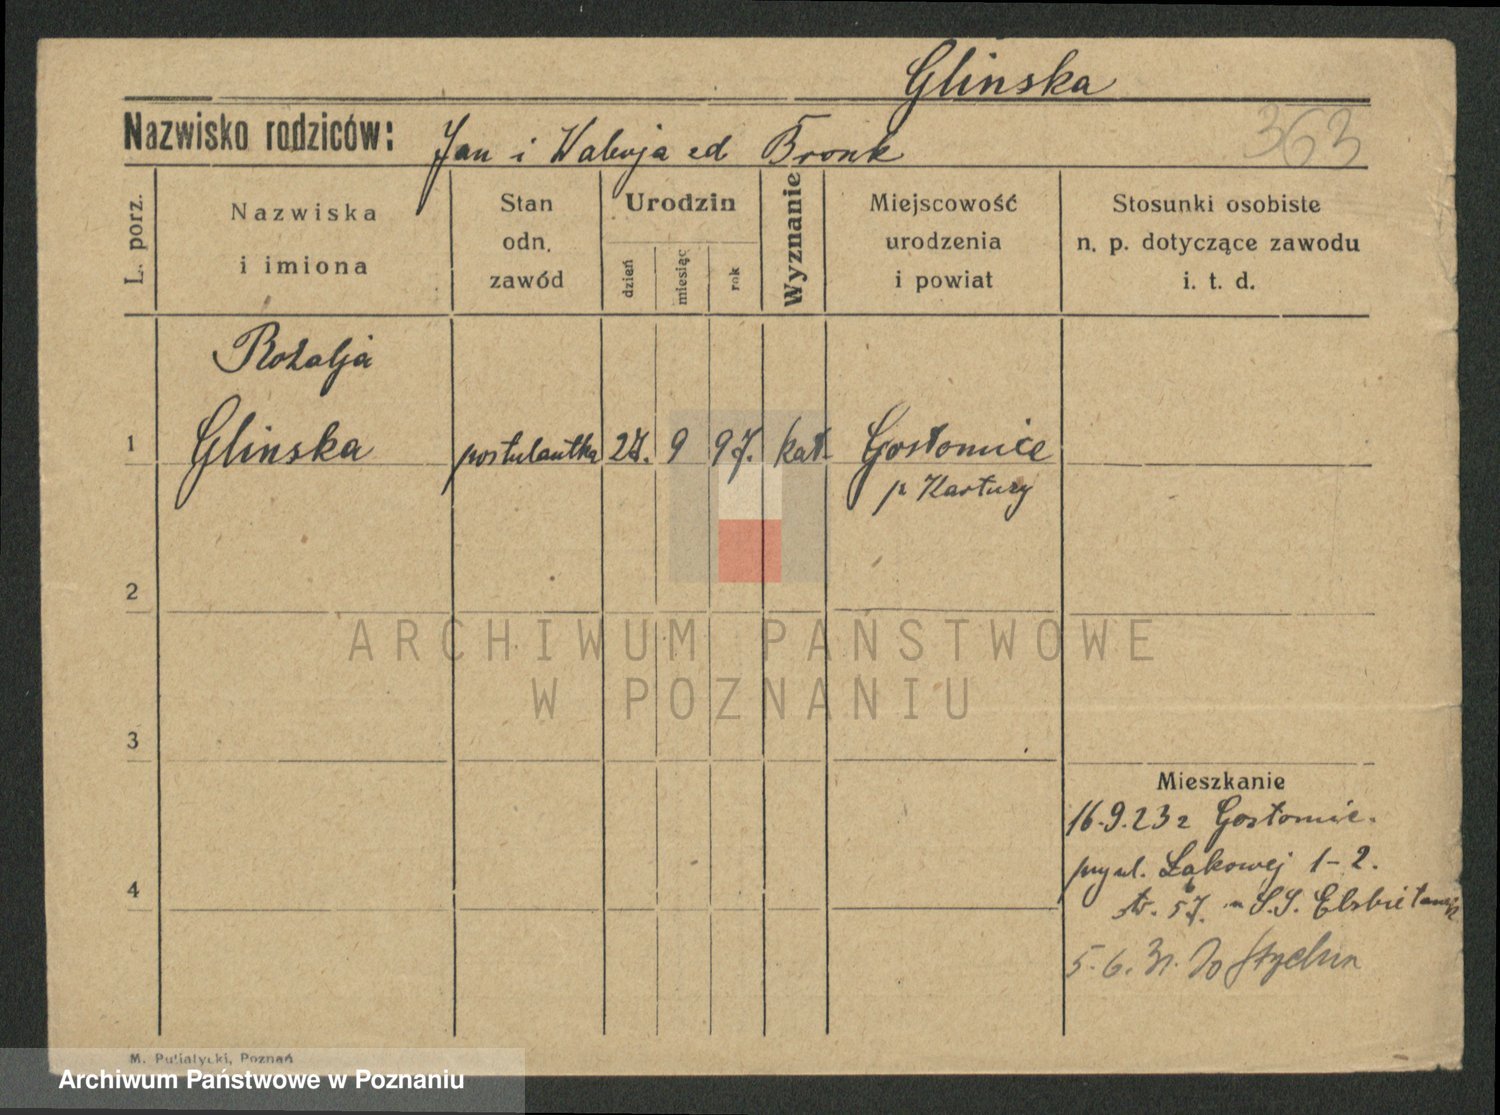 Glinska
Nazwisko rodziców: Jan i Walerja zd Bronk
363
L. porz.
Nazwiska
i imiona
Stan
odn.
zawód
Urodzin
dzień
miesiąc
rok
Wyznanie
Miejscowość
urodzenia
i powiat
Stosunki osobiste
n. p. dotyczące zawodu
i. t. d.
Rozalja
1 Glinska postulantka 27. 9 97. kat. Gostomie
p. Kartuzy
2
ARCHIWUM PAŃSTWOWE
W POZNANIU
3
Mieszkanie
16.9.23 z Gostomie.
przy ul. Łąkowej 1-2.
4
u S.S. Elżbietanek
5.6.31. Do
M. Putiatycki, Poznań
Archiwum Państwowe w Poznaniu